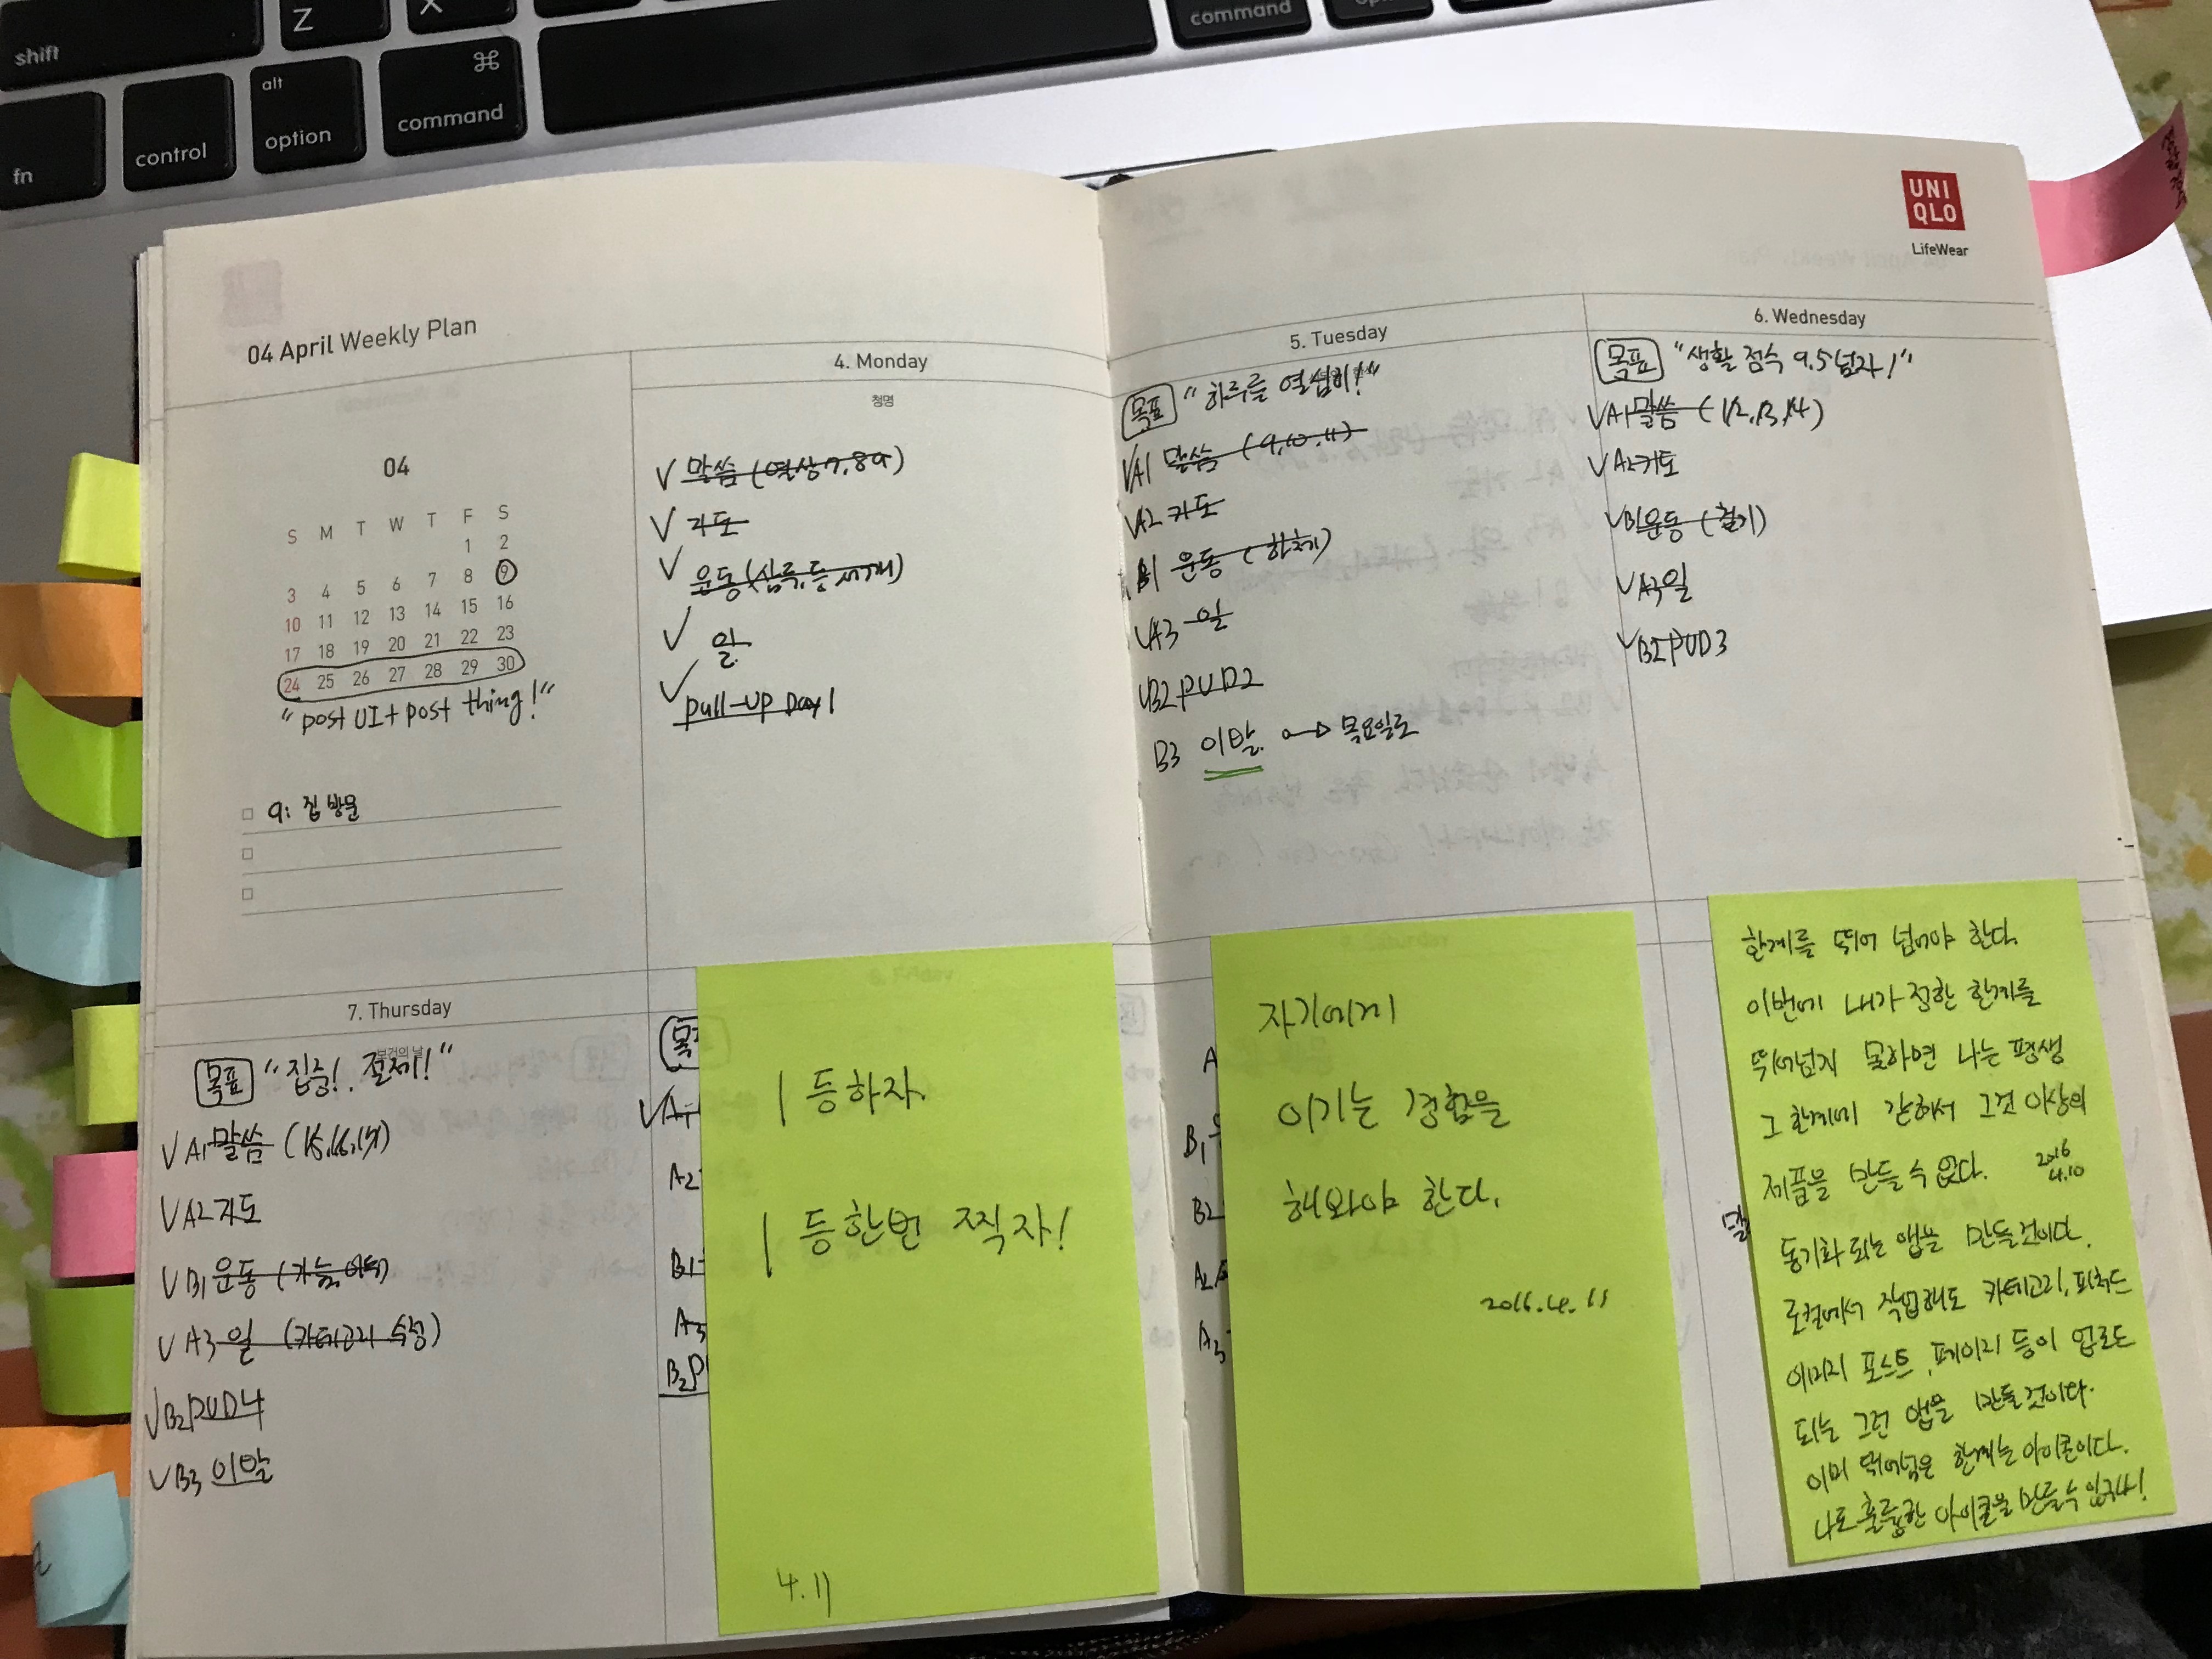 shift
Z
X
command
fn
control
alt
option
⌘
command
UNI
QLO
LifeWear
04 April Weekly Plan
04
S M T W T F S
1 2
3 4 5 6 7 8 9
10 11 12 13 14 15 16
17 18 19 20 21 22 23
24 25 26 27 28 29 30
"post UI + post thing!"
9: 집 방문
4. Monday
청명
√ 말씀 (열상 7.8 9)
√ 기도
√ 운동 (삼두, 등 세개)
√ 일
√ pull-up Day 1
5. Tuesday
목표 "하루를 열심히!"
√A1 말씀 (9.10.11)
√A2 기도
B1 운동 (하체)
√A3 일
√B2 PUD2
B3 이발 → 목요일로
6. Wednesday
목표 "생활 점수 9.5 넘자!"
√A1 말씀 (12.13.14)
√A2 기도
√B1 운동 (철기)
√A3 일
√B2 PUD3
7. Thursday
보건의 날
목표 "집중!. 절제!"
√A1 말씀 (15.16.17)
√A2 기도
√B1 운동 (가슴, 이두)
√A3 일 (카테고리 수정)
√B2 PUD4
√B3 이발
√A1
A2
B1
A3
B2 P
1등하자.
1등한번 찍자!
4.11
A
B1
B2
A2
A3
자기에게
이기는 경험을
해봐야 한다.
2016.4.11
말
한계를 뛰어 넘어야 한다.
이번에 내가 정한 한계를
뛰어넘지 못하면 나는 평생
그 한계에 갇혀서 그것 이상의
제품을 만들 수 없다. 2016 4.10
동기화 되는 앱을 만들것이다.
로컬에서 작업해도 카테고리, 피처드
이미지 포스트, 페이지 등이 업로드
되는 그런 앱을 만들것이다.
이미 뛰어넘은 한계는 아이콘이다.
나도 훌륭한 아이콘을 만들 수 있구나!